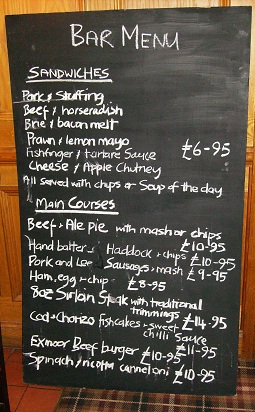 BAR MENU
SANDWICHES
Pork & Stuffing
Beef & horseradish
Brie & bacon melt
Prawn & lemon mayo
Fishfinger & tartare Sauce £6-95
Cheese & Apple Chutney
All served with chips or Soup of the day
Main Courses
Beef & Ale pie with mash or chips
£10-95
Hand batter Haddock & chips £10-95
Pork and Leek Sausages & mash £9-95
Ham, egg & chip £8-95
8oz Sirloin Steak with traditional
trimmings £14.95
Cod & Chorizo Fishcakes & sweet
chilli Sauce
£11-95
Exmoor Beef burger £10-95
Spinach / ricotta cannelloni £10-95